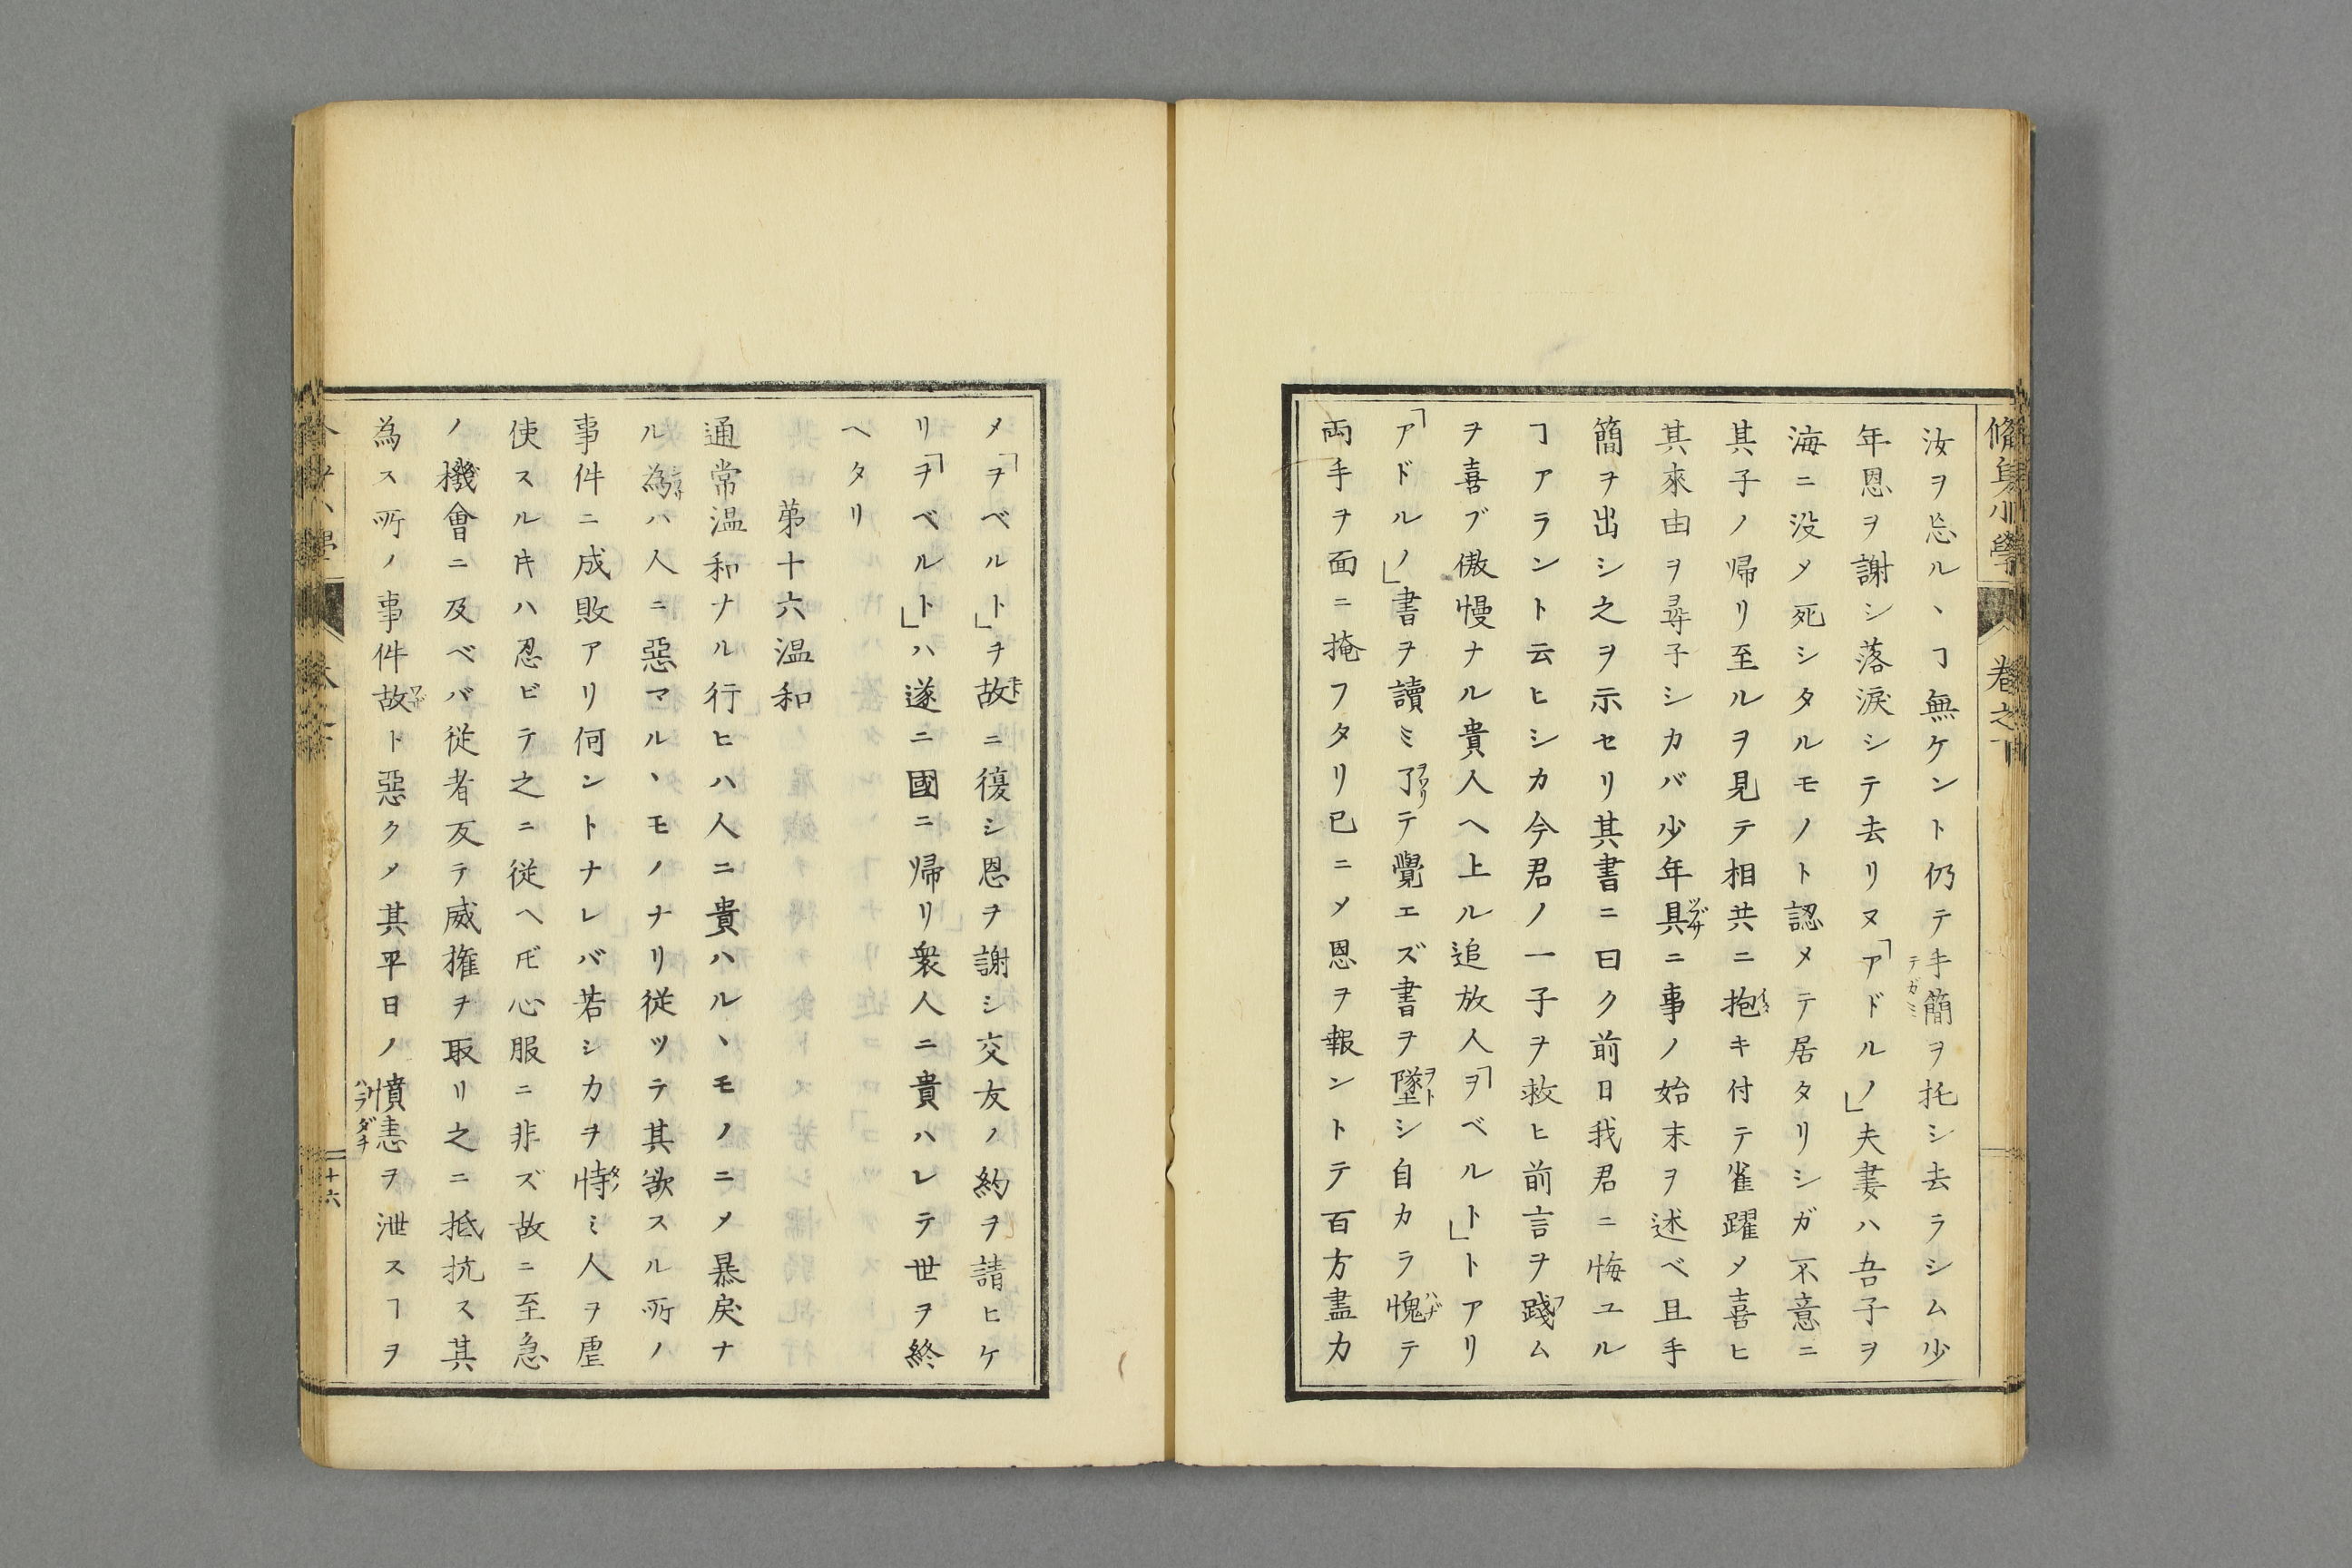 脩身小學　卷之
汝ヲ忘ルヽヿ無ケント仍テ手簡ヲ托シ去ラシム少
年恩ヲ謝シ落淚シテ去リヌ「アドルノ」夫妻ハ吾子ヲ
海ニ没メ死シタルモノト認メテ居タリシガ不意ニ
其子ノ帰リ至ルヲ見テ相共ニ抱キ付テ雀躍メ喜ヒ
其來由ヲ尋子シカバ少年具ニ事ノ始末ヲ述ベ且手
簡ヲ出シ之ヲ示セリ其書ニ曰ク前日我君ニ悔ユル
ヿアラント云ヒシカ今君ノ一子ヲ救ヒ前言ヲ踐ム
ヲ喜ブ傲慢ナル貴人ヘ上ル追放人「ヲベルト」トアリ
「アドルノ」書ヲ讀ミ了テ覺エズ書ヲ墜シ自カラ愧テ
両手ヲ面ニ掩フタリ已ニメ恩ヲ報ントテ百方盡力
メ「ヲベルト」ヲ故ニ復シ恩ヲ謝シ交友ノ約ヲ請ヒケ
リ「ヲベルト」ハ遂ニ國ニ帰リ衆人ニ貴ハレテ世ヲ終
ヘタリ
苐十六温和
通常温和ナル行ヒハ人ニ貴ハルヽモノニメ暴戻ナ
ル為ハ人ニ惡マルヽモノナリ従ツテ其欲スル所ノ
事件ニ成敗アリ何ントナレバ若シカヲ恃ミ人ヲ虐
使スル𪜈ハ忍ビテ之ニ従ヘ𪜈心服ニ非ズ故ニ至急
ノ機會ニ及ベバ従者反テ威権ヲ取リ之ニ抵抗ス其
為ス所ノ事件故ト惡クメ其平日ノ憤恚ヲ泄スヿヲ
十六